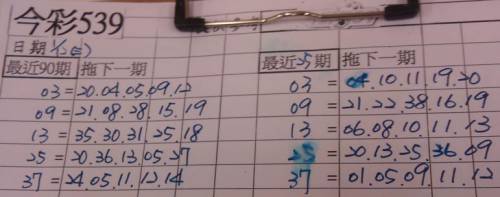 今彩539
日期
最近90期 拖下一期
03=20.04.05.09.12
09=21.08.28.15.19
13=35.30.31.25.18
25=20.36.13.05.27
37=24.05.11.12.14
最近25期 拖下一期
03=04.10.11.19.20
09=21.22.38.16.19
13=06.08.10.11.13
25=20.13.25.36.09
37=01.05.09.11.12